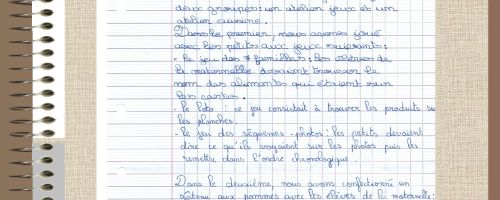 deux groupes : un atelier jeux et un
atelier cuisine.
Dans le premier, nous avons joué
avec les petits aux jeux suivants :
- le jeu des 7 familles : les élèves de
la maternelle devaient trouver le
nom des aliments qui étaient sur
les cartes.
- le loto : ce jeu consistait à trouver les produits sur
les planches.
- le jeu des séquences - photos : les petits devaient
dire ce qu'ils voyaient sur les photos puis les
remettre dans l'ordre chronologique.
Dans le deuxième, nous avons confectionné un
gâteau aux pommes avec les élèves de la maternelle ;